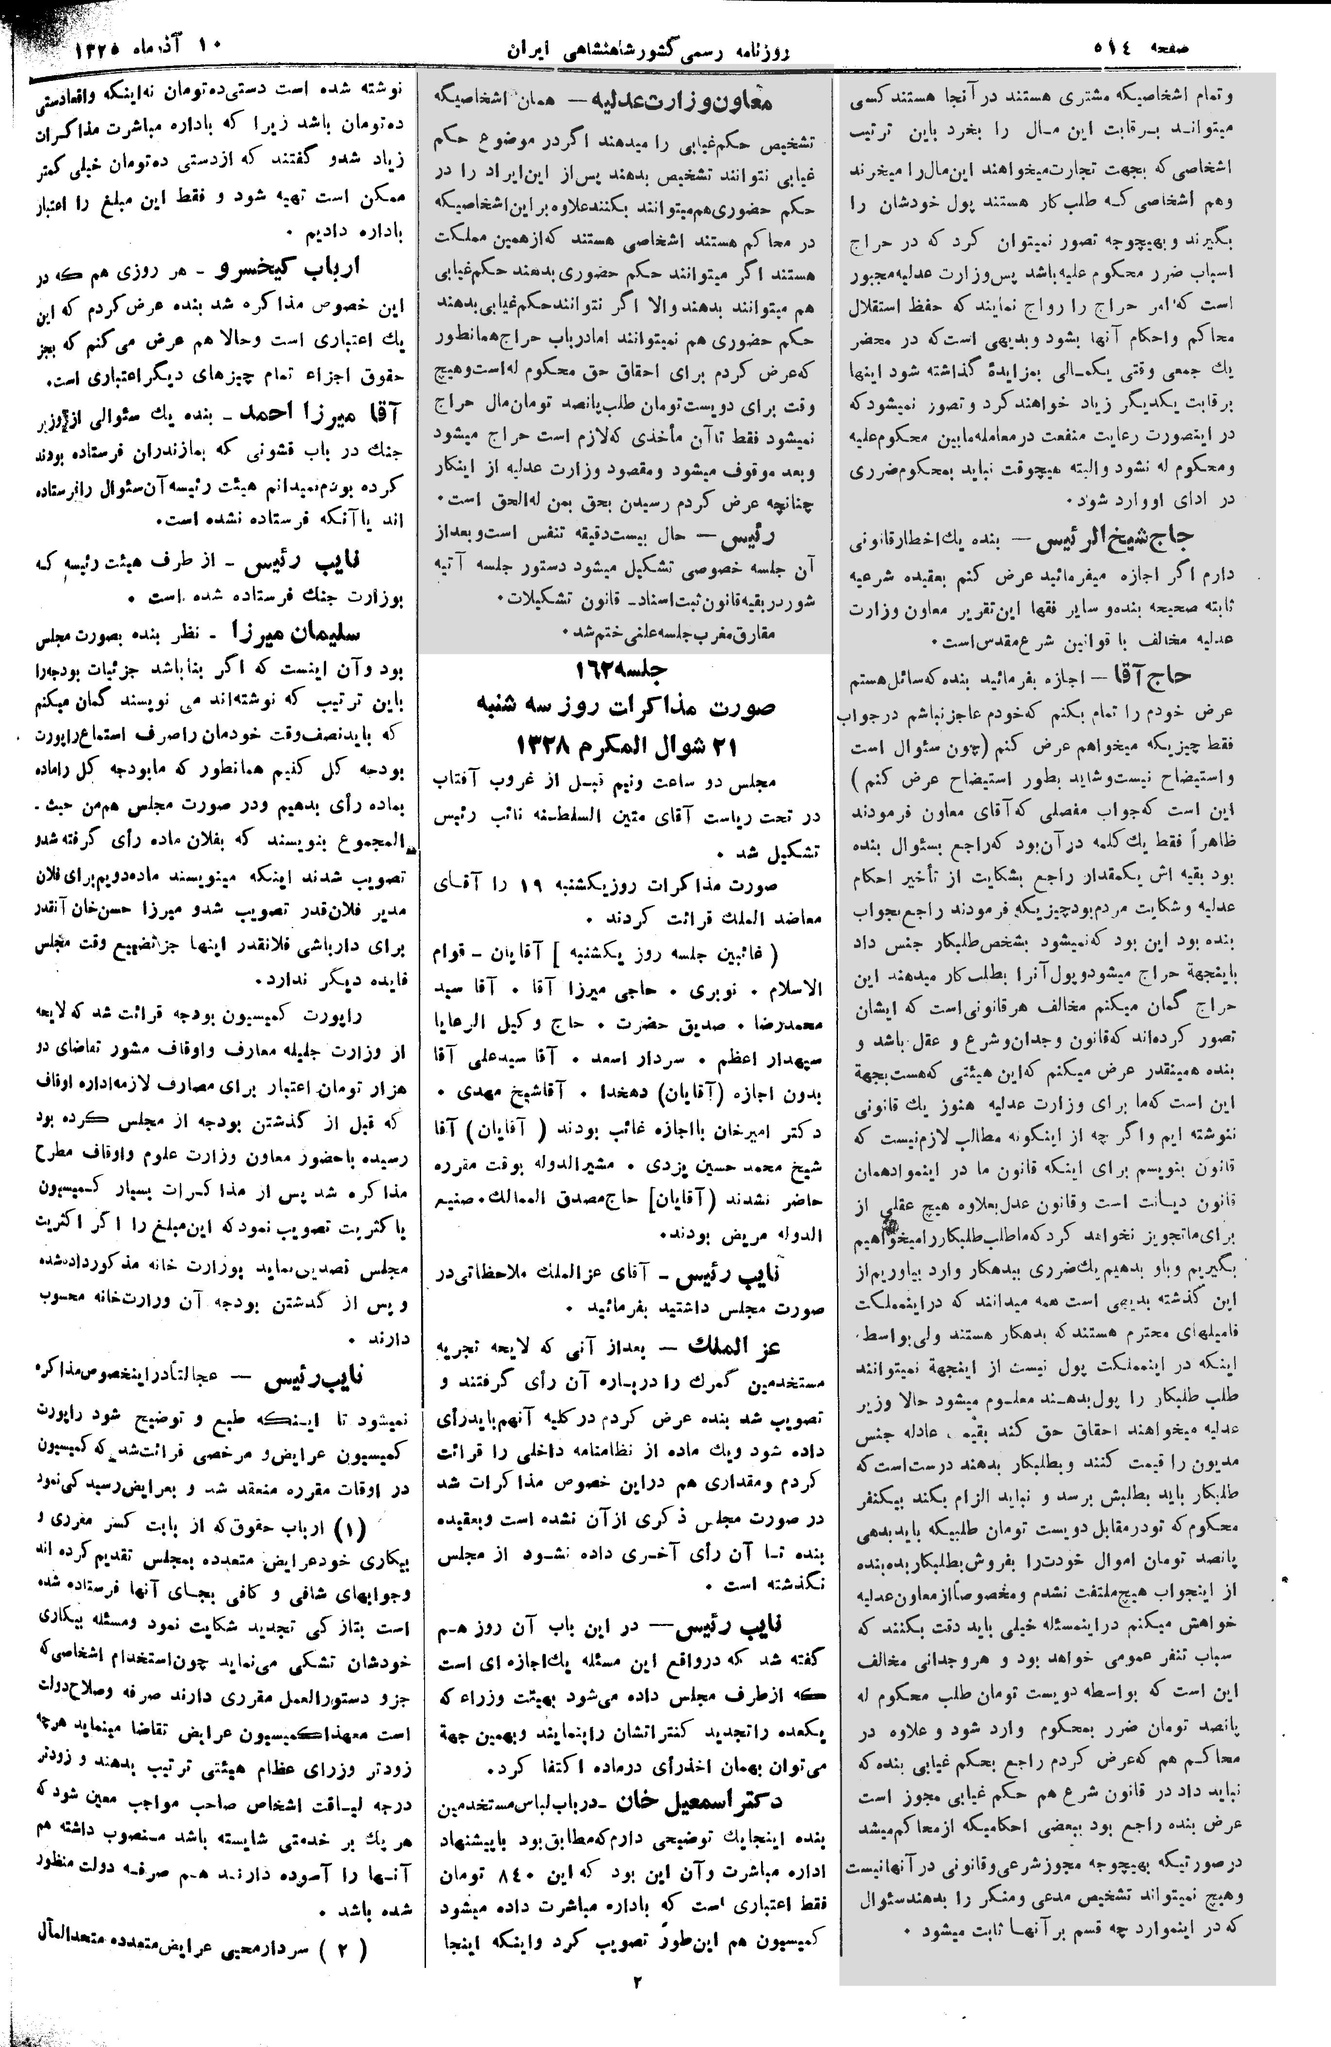 صفحه ٥١٤
روزنامه رسمی کشور شاهنشاهی ایران
١٠ آذر ماه ١٣٢٥
و تمام اشخاصیکه مشتری هستند در آنجا هستند کسی
میتواند برقابت این مال را بخرد باین ترتیب
اشخاصی که بجهت تجارت میخواهند این مال را میخرند
وهم اشخاصی که طلب کار هستند پول خودشان را
بگیرند و بهیچوجه تصور نمیتوان کرد که در حراج
اسباب ضرر محکوم علیه باشد پس وزارت عدلیه مجبور
است که امر حراج را رواج نمایند که حفظ استقلال
محاکم و احکام آنها بشود و بدیهی است که در محضر
یك جمعی وقتی یکمالی بمزایدهٔ گذاشته شود اینها
برقابت یکدیگر زیاد خواهند کرد و تصور نمیشود که
در اینصورت رعایت منفعت در معامله مابین محکوم علیه
و محکوم له نشود والبته هیچوقت نباید بمحکوم ضرری
در ادای او وارد شود.
حاج شیخ الرئیس – بنده یك اخطار قانونی
دارم اگر اجازه میفرمائید عرض کنم بعقیده شرعیه
ثابته صحیحه بنده و سایر فقها این تقریر معاون وزارت
عدلیه مخالف با قوانین شرع مقدس است.
حاج آقا – اجازه بفرمائید بنده که سائل هستم
عرض خودم را تمام بکنم که خودم عاجز نباشم در جواب
فقط چیزیکه میخواهم عرض کنم (چون سئوال است
واستیضاح نیست و شاید بطور استیضاح عرض کنم)
این است که جواب مفصلی که آقای معاون فرمودند
ظاهراً فقط یك کلمه در آن بود که راجع بسئوال بنده
بود بقیه اش یکمقدار راجع بشکایت از تأخیر احکام
عدلیه و شکایت مردم بود چیزیکه فرمودند راجع بجواب
بنده بود این بود که نمیشود بشخص طلبکار جنس داد
باینجهة حراج میشود و پول آنرا بطلب کار میدهند این
حراج گمان میکنم مخالف هر قانونی است که ایشان
تصور کرده اند که قانون وجدان و شرع و عقل باشد و
بنده همینقدر عرض میکنم که این هیئتی که هست بجهة
این است که ما برای وزارت عدلیه هنوز یك قانونی
ننوشته ایم و اگر چه از اینگونه مطالب لازم نیست که
قانون بنویسم برای اینکه قانون ما در اینمواد همان
قانون دیانت است و قانون عدل بعلاوه هیچ عقلی از
برای ما تجویز نخواهد کرد که ما طلب طلبکار را میخواهیم
بگیریم و باو بدهیم یك ضرری ببدهکار وارد بیاوریم از
این گذشته بدیهی است همه میدانند که در اینمملکت
فامیلهای محترم هستند که بدهکار هستند ولی بواسطه
اینکه در اینمملکت پول نیست از اینجهة نمیتوانند
طلب طلبکار را پول بدهند معلوم میشود حالا وزیر
عدلیه میخواهند احقاق حق کند بقیمه عادله جنس
مدیون را قیمت کنند و بطلبکار بدهند درست است که
طلبکار باید بطلبش برسد و نباید الزام بکند بیکنفر
محکوم که تو در مقابل دویست تومان طلبیکه باید بدهی
پانصد تومان اموال خودت را بفروش بطلبکار بده بنده
از اینجواب هیچ ملتفت نشدم و مخصوصاً از معاون عدلیه
خواهش میکنم در اینمسئله خیلی باید دقت بکنند که
سباب تنفر عمومی خواهد بود و هر وجدانی مخالف
این است که بواسطه دویست تومان طلب محکوم له
پانصد تومان ضرر بمحکوم وارد شود و علاوه در
محاکم هم که عرض کردم راجع بحکم غیابی بنده که
نباید داد در قانون شرع هم حکم غیابی مجوز است
عرض بنده راجع بود ببعضی احکامیکه از محاکم میشد
در صورتیکه بهیچوجه مجوز شرعی و قانونی در آنها نیست
و هیچ نمیتواند تشخیص مدعی و منکر را بدهند سئوال
که در اینموارد چه قسم بر آنها ثابت میشود .
معاون وزارت عدلیه – همان اشخاصیکه
تشخیص حکم غیابی را میدهند اگر در موضوع حکم
غیابی نتوانند تشخیص بدهند پس از این ایراد را در
حکم حضوری هم میتوانند بکنند علاوه بر این اشخاصیکه
در محاکم هستند اشخاصی هستند که از همین مملکت
هستند اگر میتوانند حکم حضوری بدهند حکم غیابی
هم میتوانند بدهند والا اگر نتوانند حکم غیابی بدهند
حکم حضوری هم نمیتوانند اما در باب حراج همانطور
که عرض کردم برای احقاق حق محکوم له است و هیچ
وقت برای دویست تومان طلب پانصد تومان مال حراج
نمیشود فقط تا آن مأخذی که لازم است حراج میشود
و بعد موقوف میشود و مقصود وزارت عدلیه از اینکار
چنانچه عرض کردم رسیدن بحق بمن له الحق است.
رئیس – حال بیست دقیقه تنفس است و بعد از
آن جلسه خصوصی تشکیل میشود دستور جلسه آتیه
شور در بقیه قانون ثبت اسناد – قانون تشکیلات.
مقارق مغرب جلسه علنی ختم شد.
جلسه ١٦٢
صورت مذاکرات روز سه شنبه
٢١ شوال المکرم ١٣٢٨
مجلس دو ساعت ونیم قبل از غروب آفتاب
در تحت ریاست آقای متین السلطنه نائب رئیس
تشکیل شد .
صورت مذاکرات روز یکشنبه ١٩ را آقای
معاضد الملك قرائت کردند .
( غائبین جلسه روز یکشنبه ] آقایان – قوام
الاسلام . نوبری . حاجی میرزا آقا . آقا سید
محمدرضا . صدیق حضرت . حاج وکیل الرعایا
سپهدار اعظم . سردار اسعد . آقا سید علی آقا
بدون اجازه (آقایان) دهخدا . آقا شیخ مهدی .
دکتر امیرخان با اجازه غائب بودند ( آقایان) آقا
شیخ محمد حسین یزدی . مشیرالدوله بوقت مقرره
حاضر نشدند (آقایان] حاج مصدق الممالك. صنیع
الدوله مریض بودند.
نایب رئیس – آقای عزالملك ملاحظاتی در
صورت مجلس داشتید بفرمائید .
عز الملك – بعد از آنی که لایحه تجریه
مستخدمین گمرك را درباره آن رأی گرفتند و
تصویب شد بنده عرض کردم در کلیه آنهم باید رأی
داده شود ویك ماده از نظامنامه داخلی را قرائت
کردم و مقداری هم در این خصوص مذاکرات شد
در صورت مجلس ذکری از آن نشده است و بعقیده
بنده تا آن رأی آخری داده نشود از مجلس
نگذشته است .
نایب رئیس – در این باب آن روز هم
گفته شد که در واقع این مسئله یك اجازه ای است
که از طرف مجلس داده می شود بهیئت وزراء که
یکعده را تجدید کنتراتشان را بنمایند و بهمین جهة
می توان بهمان اخذ رأی در ماده اکتفا کرد.
دکتر اسمعیل خان – در باب لباس مستخدمین
بنده اینجا یك توضیحی دارم که مطابق بود با پیشنهاد
اداره مباشرت و آن این بود که این ٨٤٠ تومان
فقط اعتباری است که باداره مباشرت داده میشود
کمیسیون هم این طور تصویب کرد و اینکه اینجا
نوشته شده است دستی ده تومان نه اینکه واقعا دستی
ده تومان باشد زیرا که باداره مباشرت مذاکرات
زیاد شد و گفتند که از دستی ده تومان خیلی کمتر
ممکن است تهیه شود و فقط این مبلغ را اعتبار
باداره دادیم .
ارباب کیخسرو – هر روزی هم که در
این خصوص مذاکره شد بنده عرض کردم که این
یك اعتباری است و حالا هم عرض می کنم که بجز
حقوق اجزاء تمام چیزهای دیگر اعتباری است.
آقا میرزا احمد – بنده یك سئوالی از وزیر
جنك در باب قشونی که بمازندران فرستاده بودند
کرده بودم نمیدانم هیئت رئیسه آن سئوال را فرستاده
اند یا آنکه فرستاده نشده است.
نایب رئیس – از طرف هیئت رئیسه که
بوزارت جنك فرستاده شده است .
سلیمان میرزا – نظر بنده بصورت مجلس
بود و آن اینست که اگر بنا باشد جزئیات بودجه را
باین ترتیب که نوشته اند می نویسند گمان میکنم
که باید نصف وقت خودمان را صرف استماع راپورت
بودجه کل کنیم همانطور که ما بودجه کل را ماده
بماده رأی بدهیم و در صورت مجلس هم من حیث –
المجموع بنویسند که بفلان ماده رأی گرفته شد و
تصویب شدند اینکه مینویسند ماده دویم برای فلان
مدیر فلان قدر تصویب شد و میرزا حسن خان آنقدر
برای دارباشی فلانقدر اینها جز تضییع وقت مجلس
فایده دیگر ندارد.
راپورت کمیسیون بودجه قرائت شد که لایحه
از وزارت جلیله معارف و اوقاف مشور تقاضای دو
هزار تومان اعتبار برای مصارف لازمه اداره اوقاف
که قبل از گذشتن بودجه از مجلس کرده بود
رسیده با حضور معاون وزارت علوم و اوقاف مطرح
مذاکره شد پس از مذاکرات بسیار کمیسیون
باکثریت تصویب نمود که این مبلغ را اگر اکثریت
مجلس تصدیق نماید بوزارت خانه مذکور داده شده
و پس از گذشتن بودجه آن وزارت خانه محسوب
دارند .
نایب رئیس – عجالتاً در اینخصوص مذاکره
نمیشود تا اینکه طبع و توضیح شود راپورت
کمیسیون عرایض و مرخصی قرائت شد که کمیسیون
در اوقات مقرره منعقد شد و بعرایض رسیدگی نمود
(١) ارباب حقوق که از بابت کسر مقرری و
بیکاری خود عرایض متعدده بمجلس تقدیم کرده اند
و جوابهای شافی و کافی بجای آنها فرستاده شده
است بتازگی تجدید شکایت نمود و مسئله بیکاری
خودشان تشکی می نماید چون استخدام اشخاصی که
جزو دستورالعمل مقرری دارند صرفه و صلاح دولت
است معهذا کمیسیون عرایض تقاضا مینماید هرچه
زودتر وزرای عظام هیئتی ترتیب بدهند و زودتر
درجه لیاقت اشخاص صاحب مواجب معین شود که
هر یك بر خدمتی شایسته باشد منصوب داشته هم
آنها را آسوده دارند هم صرفه دولت منظور
شده باشد .
( ٢ ) سردار محیی عرایض متعدده متحدالمآل
٢